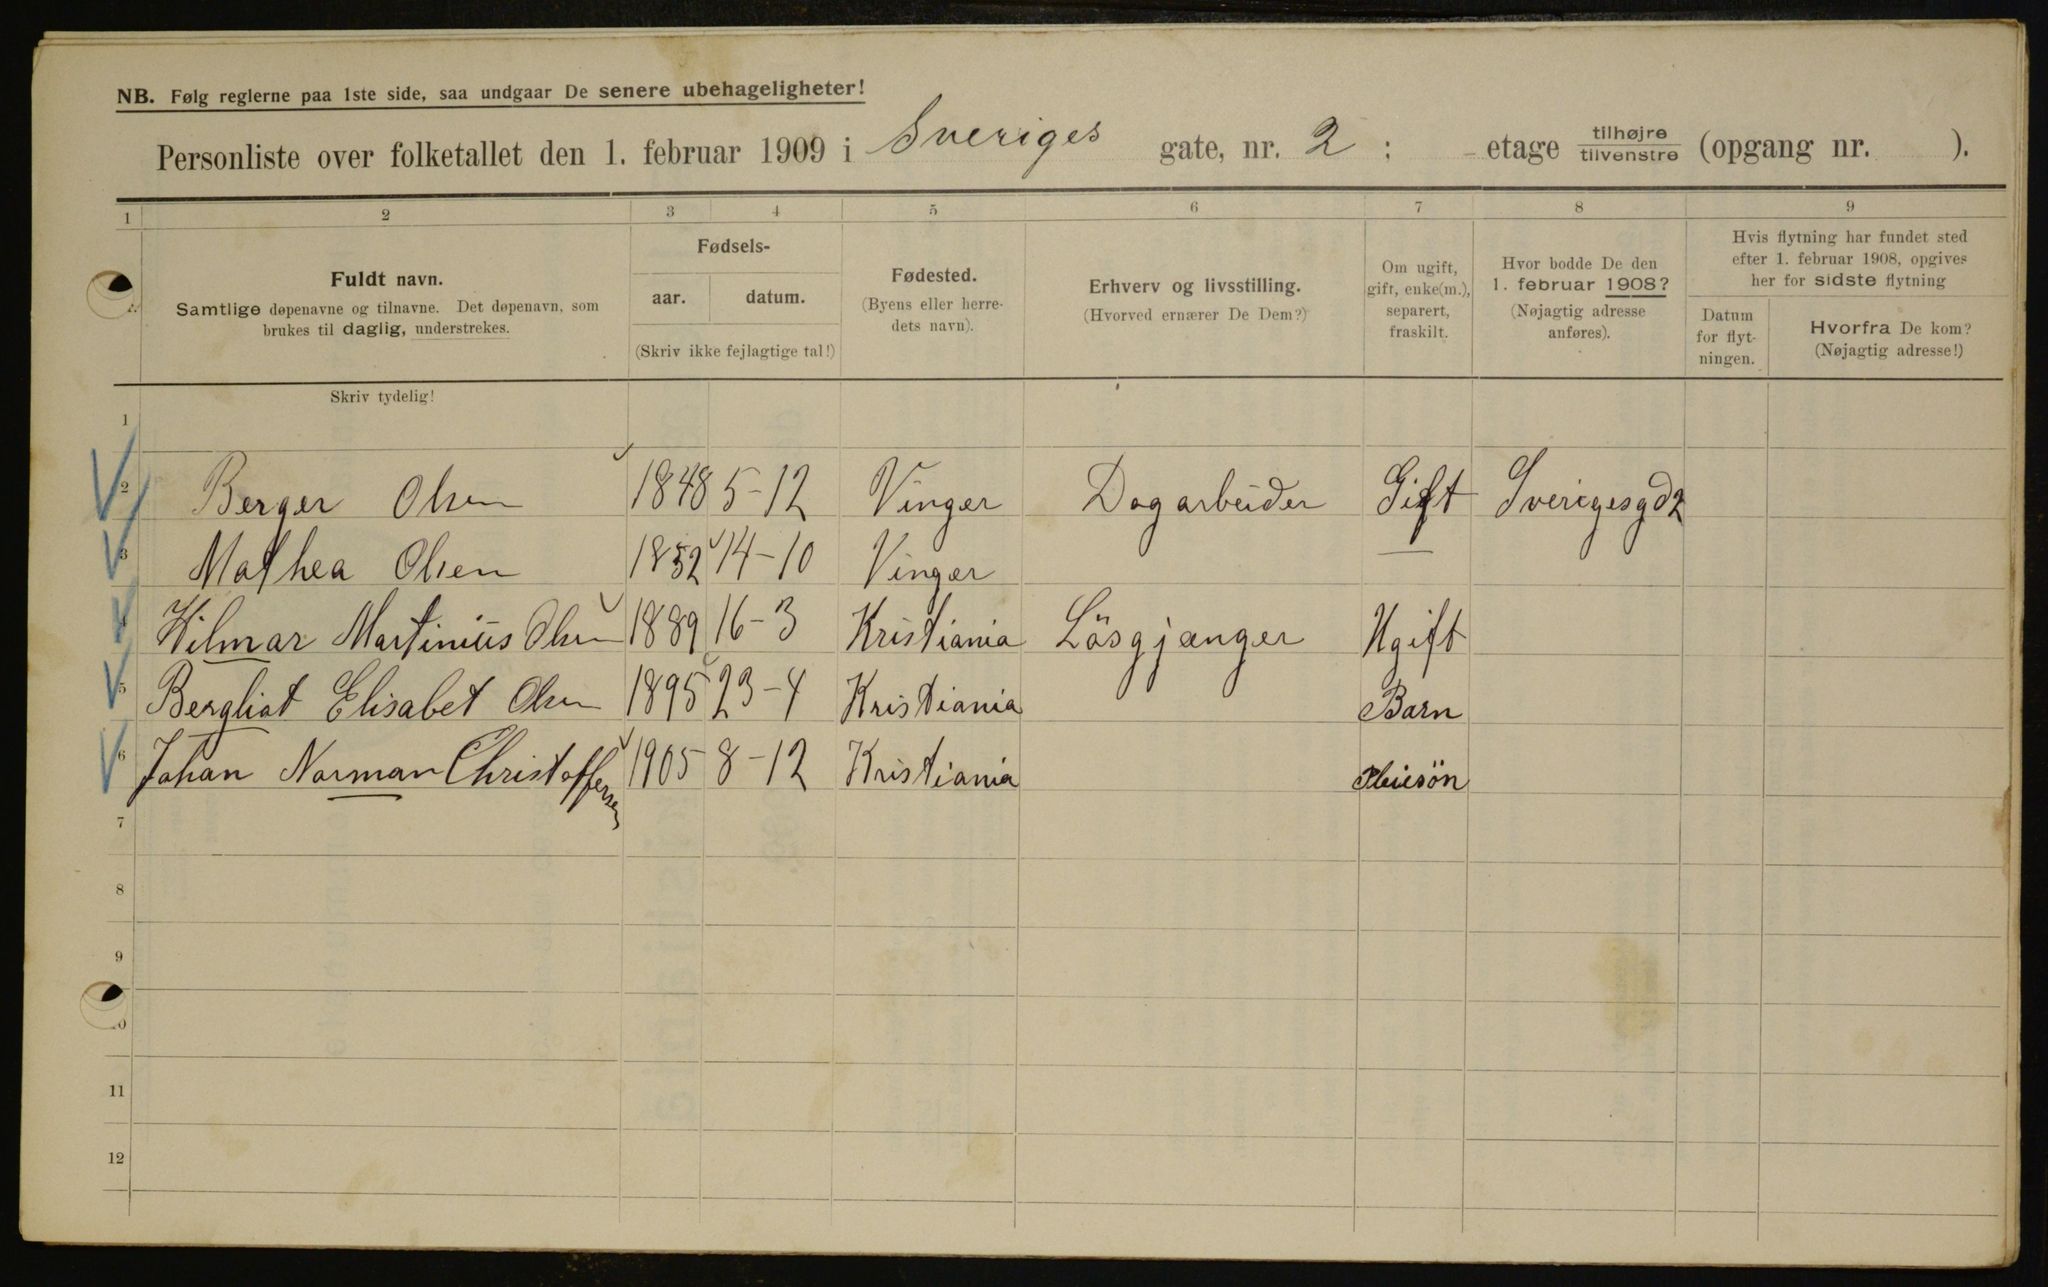 NB. Følg reglerne paa 1ste side, saa undgaar De senere ubehageligheter!
Personliste over folketallet den 1. februar 1909 i Sveriges gate, nr. 2 ; etage tilhøjre/tilvenstre (opgang nr. ).
1 2 3 4 5 6 7 8 9
Fuldt navn.
Samtlige døpenavne og tilnavne. Det døpenavn, som
brukes til daglig, understrekes.
Fødsels-
aar. datum.
(Skriv ikke fejlagtige tal!)
Fødested.
(Byens eller herre-
dets navn).
Erhverv og livsstilling.
(Hvorved ernærer De Dem?)
Om ugift,
gift, enke(m.),
separert,
fraskilt.
Hvor bodde De den
1. februar 1908?
(Nøjagtig adresse
anføres).
Hvis flytning har fundet sted
efter 1. februar 1908, opgives
her for sidste flytning
Datum
for flyt-
ningen.
Hvorfra De kom?
(Nøjagtig adresse!)
Skriv tydelig!
1
2 Berger Olsen 1848 5-12 Vinger Dagarbeider Gift Sverigesgd 2
3 Mathea Olsen 1852 14-10 Vinger —
4 Hilmar Martinius Olsen 1889 16-3 Kristiania Lösgjænger Ugift
5 Bergliot Elisabet Olsen 1895 23-4 Kristiania Barn
6 Johan Norman Christoffersen 1905 8-12 Kristiania Pleiesön
7
8
9
10
11
12